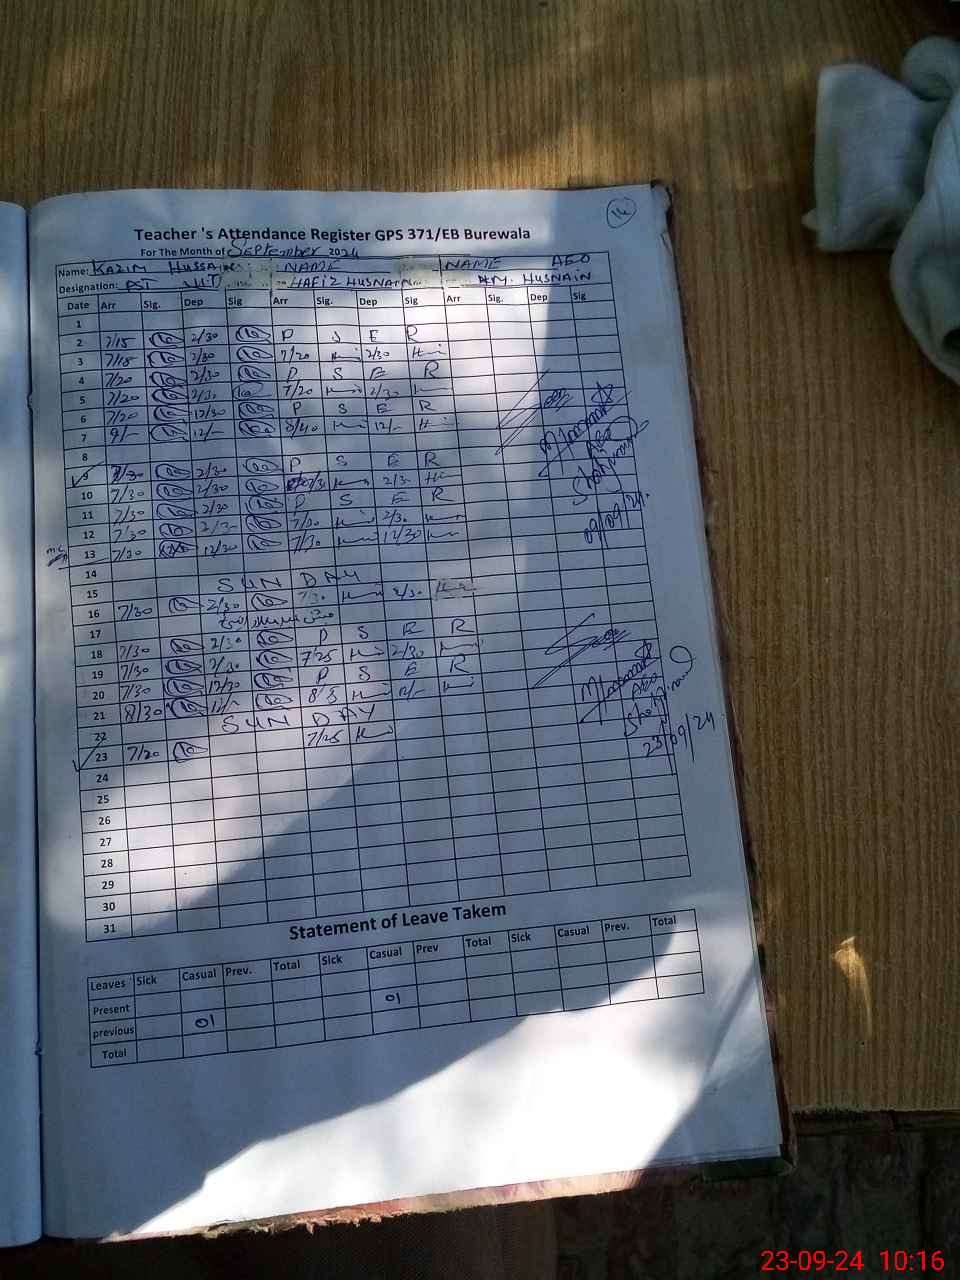 14
Teacher 's Attendance Register GPS 371/EB Burewala
For The Month of September 2024
Name: KAZIM HUSSAIN NAME NAME AEO
Designation: PST HAFIZ HUSNAIN M. HUSNAIN
Date Arr Sig. Dep Sig Arr Sig. Dep Sig Arr Sig. Dep Sig
1
2 7/15 2/30 P S E R
3 7/15 2/30 7/20 2/30
4 7/20 2/30 P S E R
5 7/20 2/30 7/20 2/30
6 7/20 12/30 P S E R
7 9/- 12/- 8/40 12/-
8
9 7/30 2/30 P S E R
10 7/30 2/30 7/30 2/30
11 7/30 2/30 P S E R
12 7/30 2/30 7/30 2/30
13 7/30 12/30 7/30 12/30
14
15 SUN DAY
16 7/30 2/30 7/30 2/30
17
18 7/30 2/30 P S E R
19 7/30 2/30 7/25 2/30
20 7/30 12/30 P S E R
21 8/30 12/- 12/-
22 SUN DAY
23 7/20 7/25
24
25
26
27
28
29
30
31
AEO
09/09/24
AEO
23/09/24
Statement of Leave Takem
Leaves Sick Casual Prev. Total Sick Casual Prev Total Sick Casual Prev. Total
Present 01
previous 01
Total
23-09-24 10:16